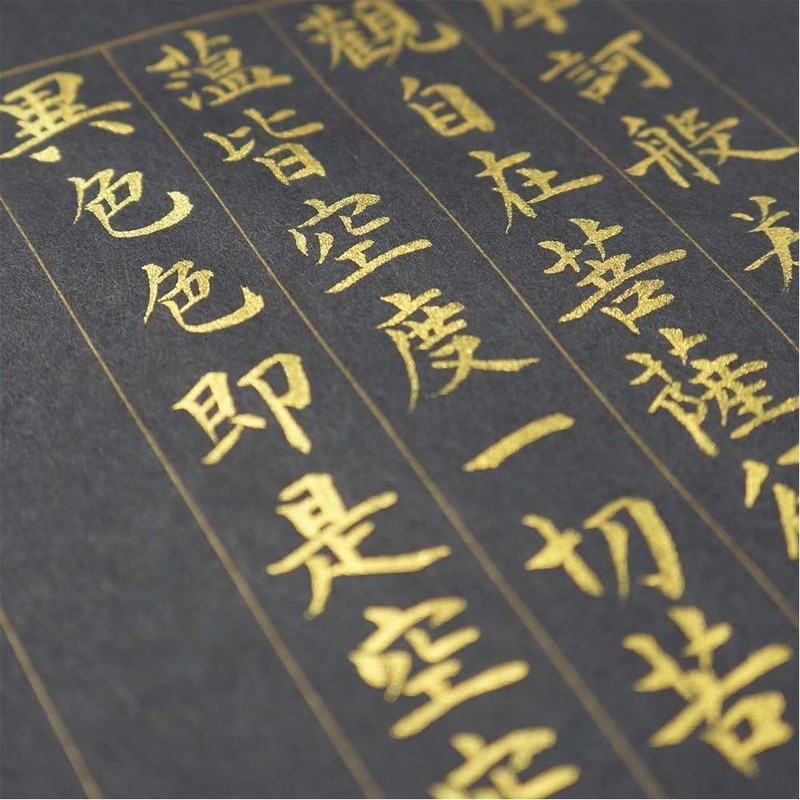 訶般
觀自在菩薩
薀皆空度一切苦
異色色即是空空